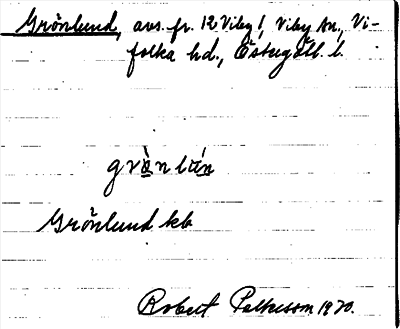 Grönlund, avs. fr. 12 Viby 1, Viby sn., Vi-
folka hd., Östergötl. l.
Grönlund kb
Robert 1970.